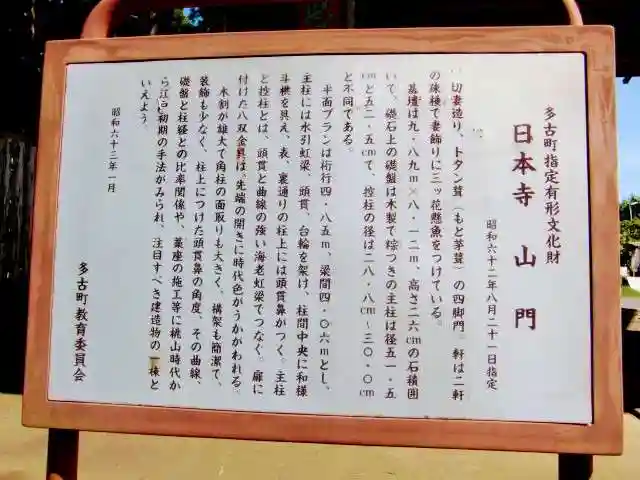 多古町指定有形文化財
日本寺 山門
昭和六十二年八月二十一日指定
切妻造り、トタン葺(もと茅葺)の四脚門。軒は二軒
の疎棰で妻飾りに三ッ花懸魚をつけている。
基壇は九・八九m×八・一二m、高さ二六cmの石積囲
いで、礎石上の礎盤は木製で粽つきの主柱は径五一・五
cmと五二・五cmで、控柱の径は二八・八cm～三〇・〇cm
と不同である。
平面プランは桁行四・八五m、梁間四・〇六mとし、
主柱には水引虹梁、頭貫、台輪を架け、柱間中央に和様
斗栱を具え、表、裏通りの柱上には頭貫鼻がつく。主柱
と控柱とは、頭貫と曲線の強い海老虹梁でつなぐ。扉に
付けた八双金具は、先端の開きに時代色がうかがわれる。
木割が雄大で角柱の面取りも大きく、構架も簡潔で、
装飾も少なく、柱上につけた頭貫鼻の角度、その曲線、
礎盤と柱径との比率関係や、藁座の施工等に桃山時代か
ら江戸初期の手法がみられ、注目すべき建造物の一棟と
いえよう。
昭和六十三年一月
多古町教育委員会